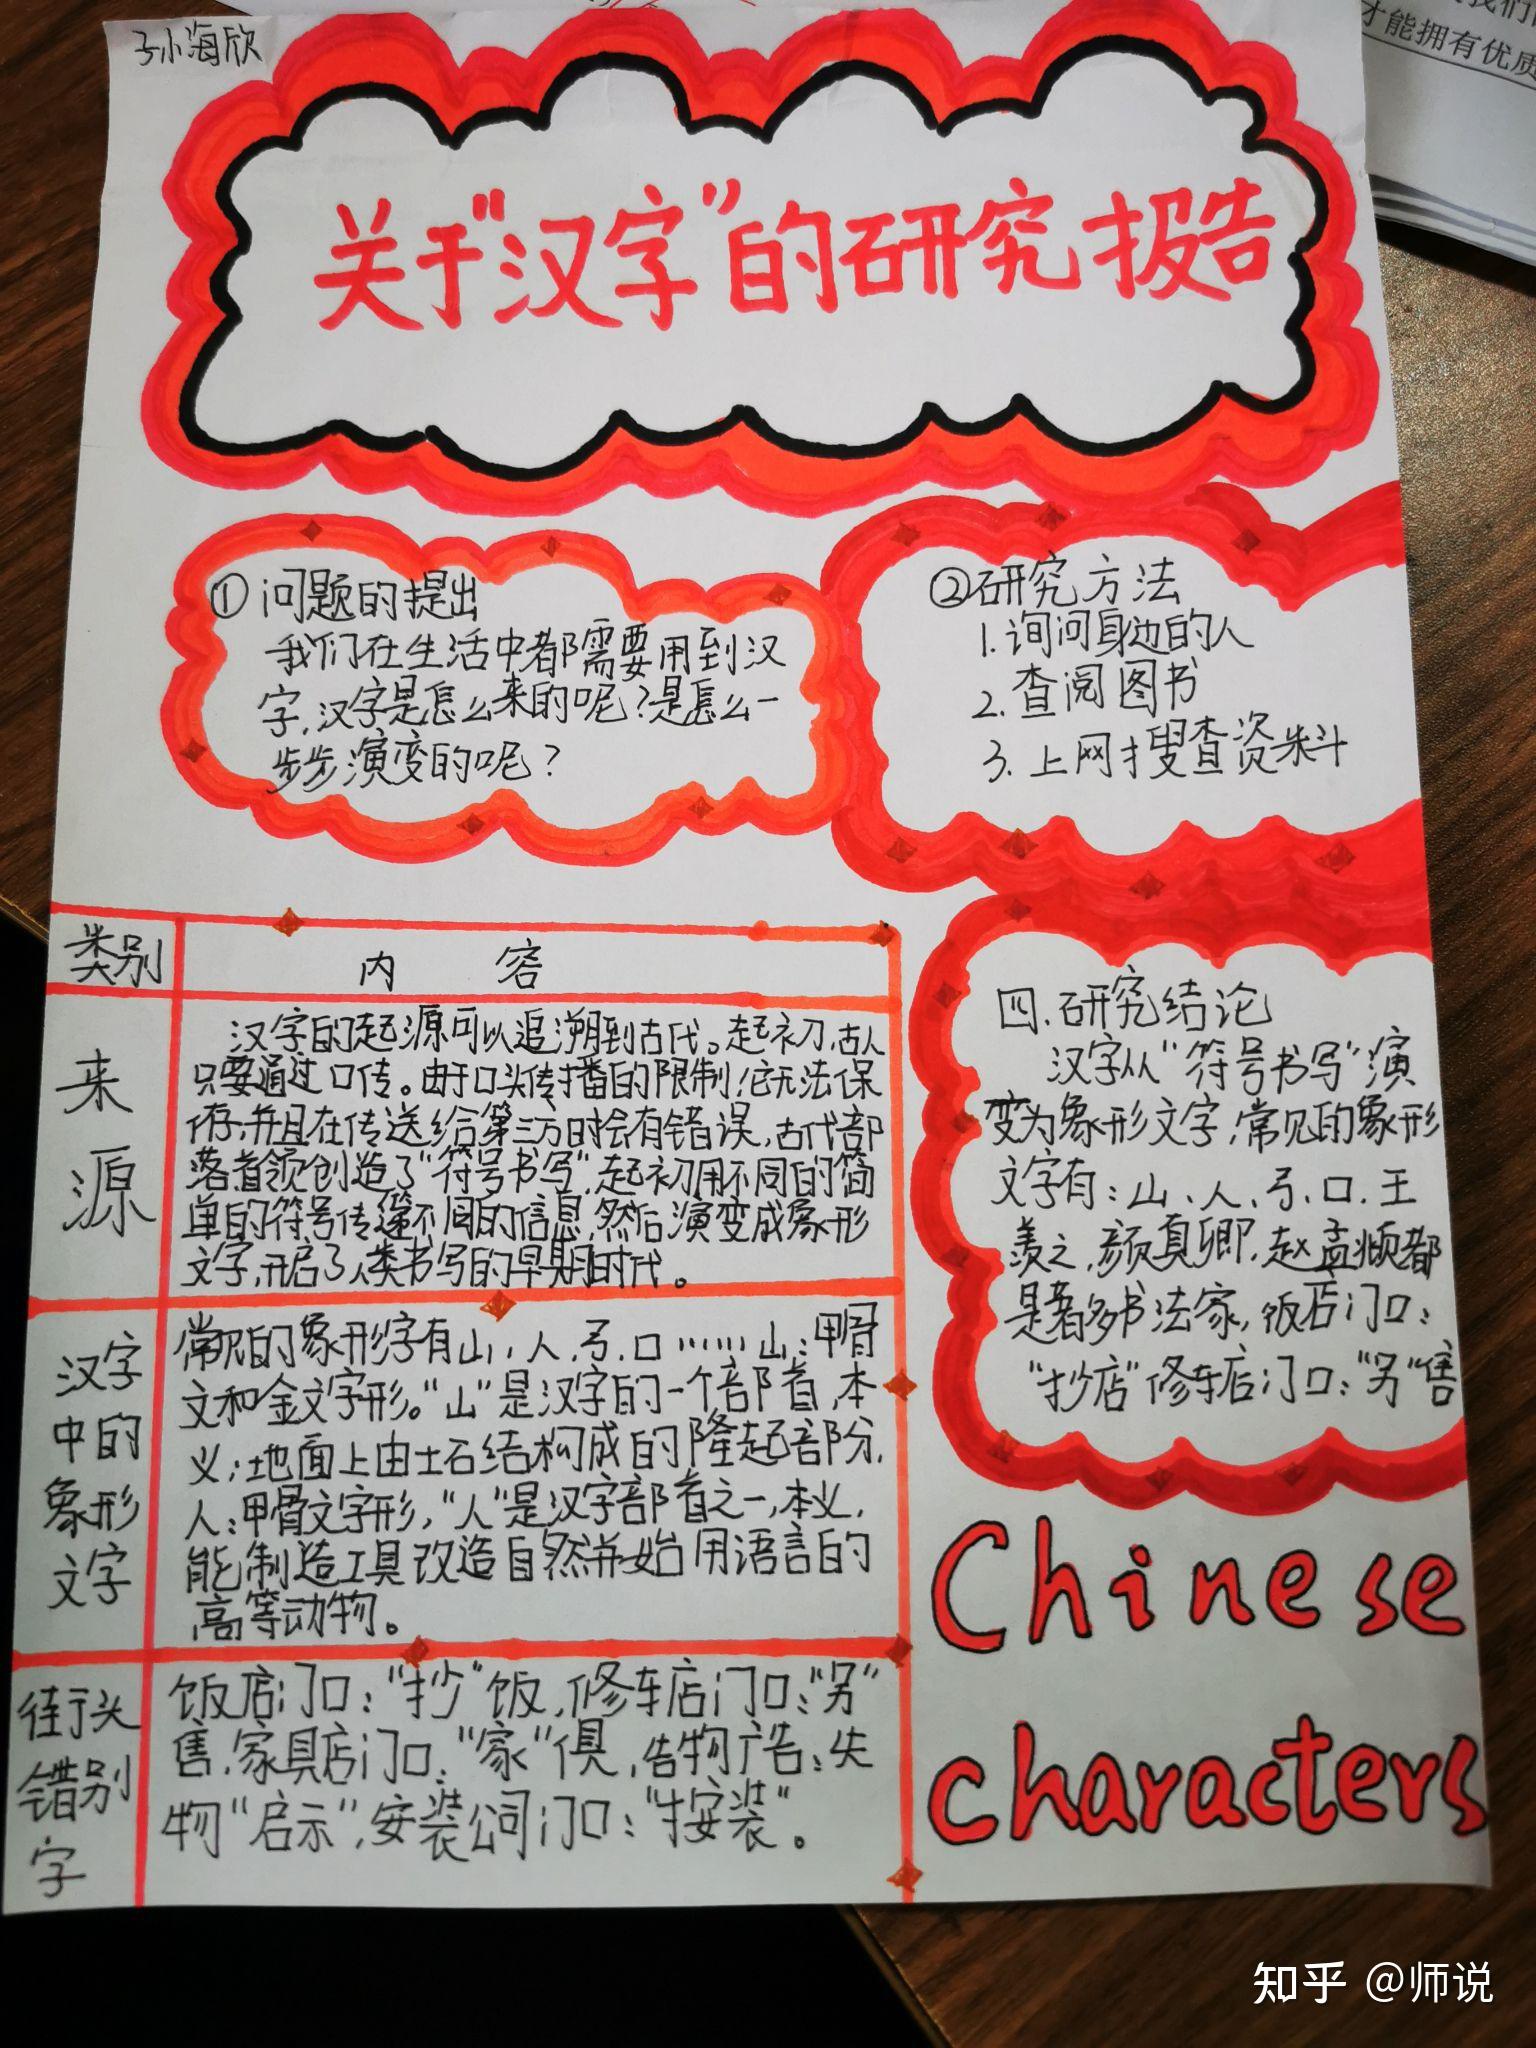 孙海欣
我们
才能拥有优质
关于“汉字”的研究报告
①问题的提出
我们在生活中都需要用到汉
字,汉字是怎么来的呢?是怎么一
步步演变的呢?
②研究方法
1.询问身边的人
2.查阅图书
3.上网搜查资料
类别
内 容
来源
汉字的起源可以追溯到古代。起初,古人
只要通过口传。由于口头传播的限制,它无法保
存,并且在传送给第三方时会有错误,古代部
落首领创造了“符号书写”,起初用不同的简
单的符号传递不同的信息,然后演变成象形
文字,开启了人类书写的早期时代。
汉字
中的
象形
文字
常见的象形字有山、人、弓、口……山:甲骨
文和金文字形。“山”是汉字的一个部首,本
义:地面上由土石结构成的隆起部分,
人:甲骨文字形,“人”是汉字部首之一,本义,
能制造工具改造自然并始用语言的
高等动物。
街头
错别
字
饭店门口:“抄”饭,修车店门口:“另”
售,家具店门口:“家”俱,告物广告:失
物“启示”,安装公司门口:“按装”。
四.研究结论
汉字从“符号书写”演
变为象形文字,常见的象形
文字有:山、人、弓、口.王
羲之,颜真卿,赵孟頫都
是著多书法家,饭店门口:
“抄店”修车店门口:“另”售
Chinese
characters
知乎 @师说